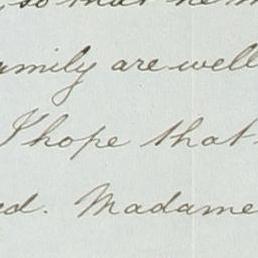 so that he
family are well
I hope that
ed. Madame